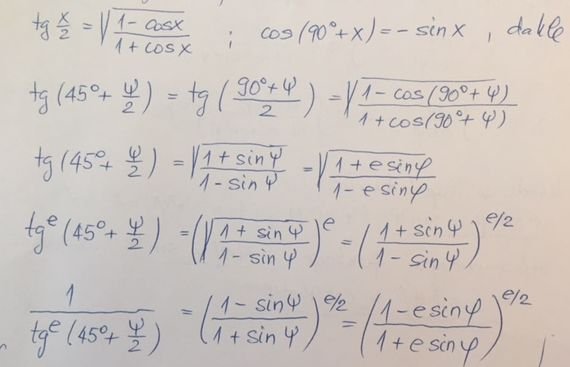 tg x/2 = √((1 - cosx)/(1 + cosx)) ; cos(90°+x) = - sinx , dakle
tg(45°+ ψ/2) = tg((90°+ψ)/2) = √((1 - cos(90°+ψ))/(1 + cos(90°+ψ)))
tg(45°+ ψ/2) = √((1 + sinψ)/(1 - sinψ)) = √((1 + e sinφ)/(1 - e sinφ))
tg^e(45°+ ψ/2) = (√((1 + sinψ)/(1 - sinψ)))^e = ((1 + sinψ)/(1 - sinψ))^(e/2)
1/(tg^e(45°+ ψ/2)) = ((1 - sinψ)/(1 + sinψ))^(e/2) = ((1 - e sinφ)/(1 + e sinφ))^(e/2)